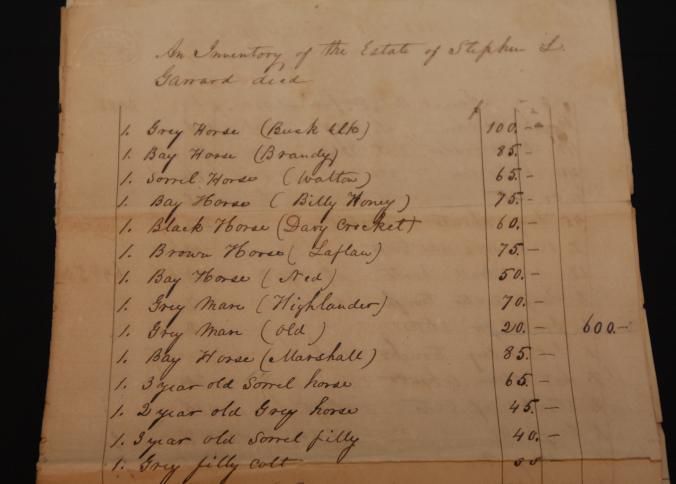 An Inventory of the Estate of Stephen L.
Garrard died
$
1. Grey Horse (Buck Elk) 100. -
1. Bay Horse (Brandy) 85. -
1. Sorrel Horse (Walton) 65. -
1. Bay Horse (Billy Honey) 75. -
1. Black Horse (Davy Crocket) 60. -
1. Brown Horse (Laflau) 75. -
1. Bay Horse (Ned) 50. -
1. Grey Mare (Highlander) 70. -
1. Grey Mare (old) 20. - 600. -
1. Bay Horse (Marshall) 85. -
1. 3 year old Sorrel horse 65. -
1. 2 year old Grey horse 45. -
1. 3 year old Sorrel filly 40. -
1. Grey filly colt